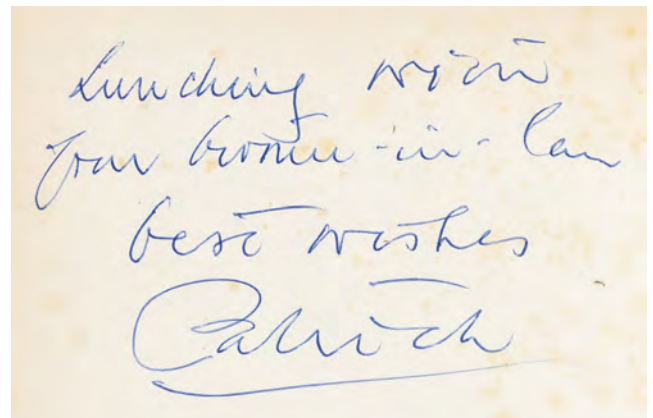 Lunching with
your brother-in-law
best wishes
Patrick